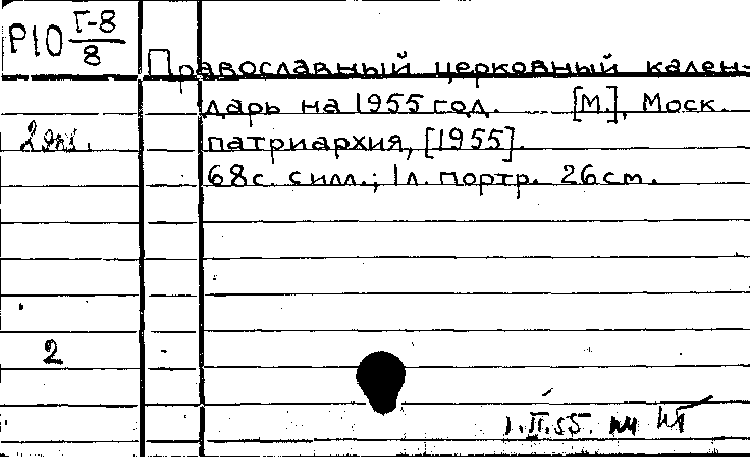 Р10 Г-8/8
Православный церковный кален-
дарь на 1955 год. [М.], Моск.
2 экз.
патриархия, [1955].
68с. с илл.; 1л. портр. 26 см.
2
1.II.55.